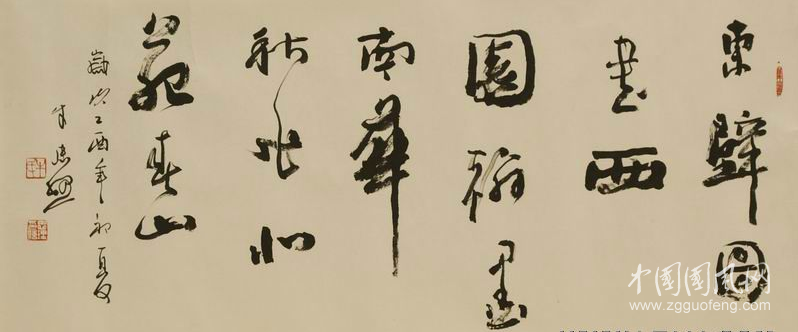 東壁圖
書西
園翰墨
南華
秋水北
苑春山
歲次乙酉年初夏
朱
中国国风网
www.zgguofeng.com